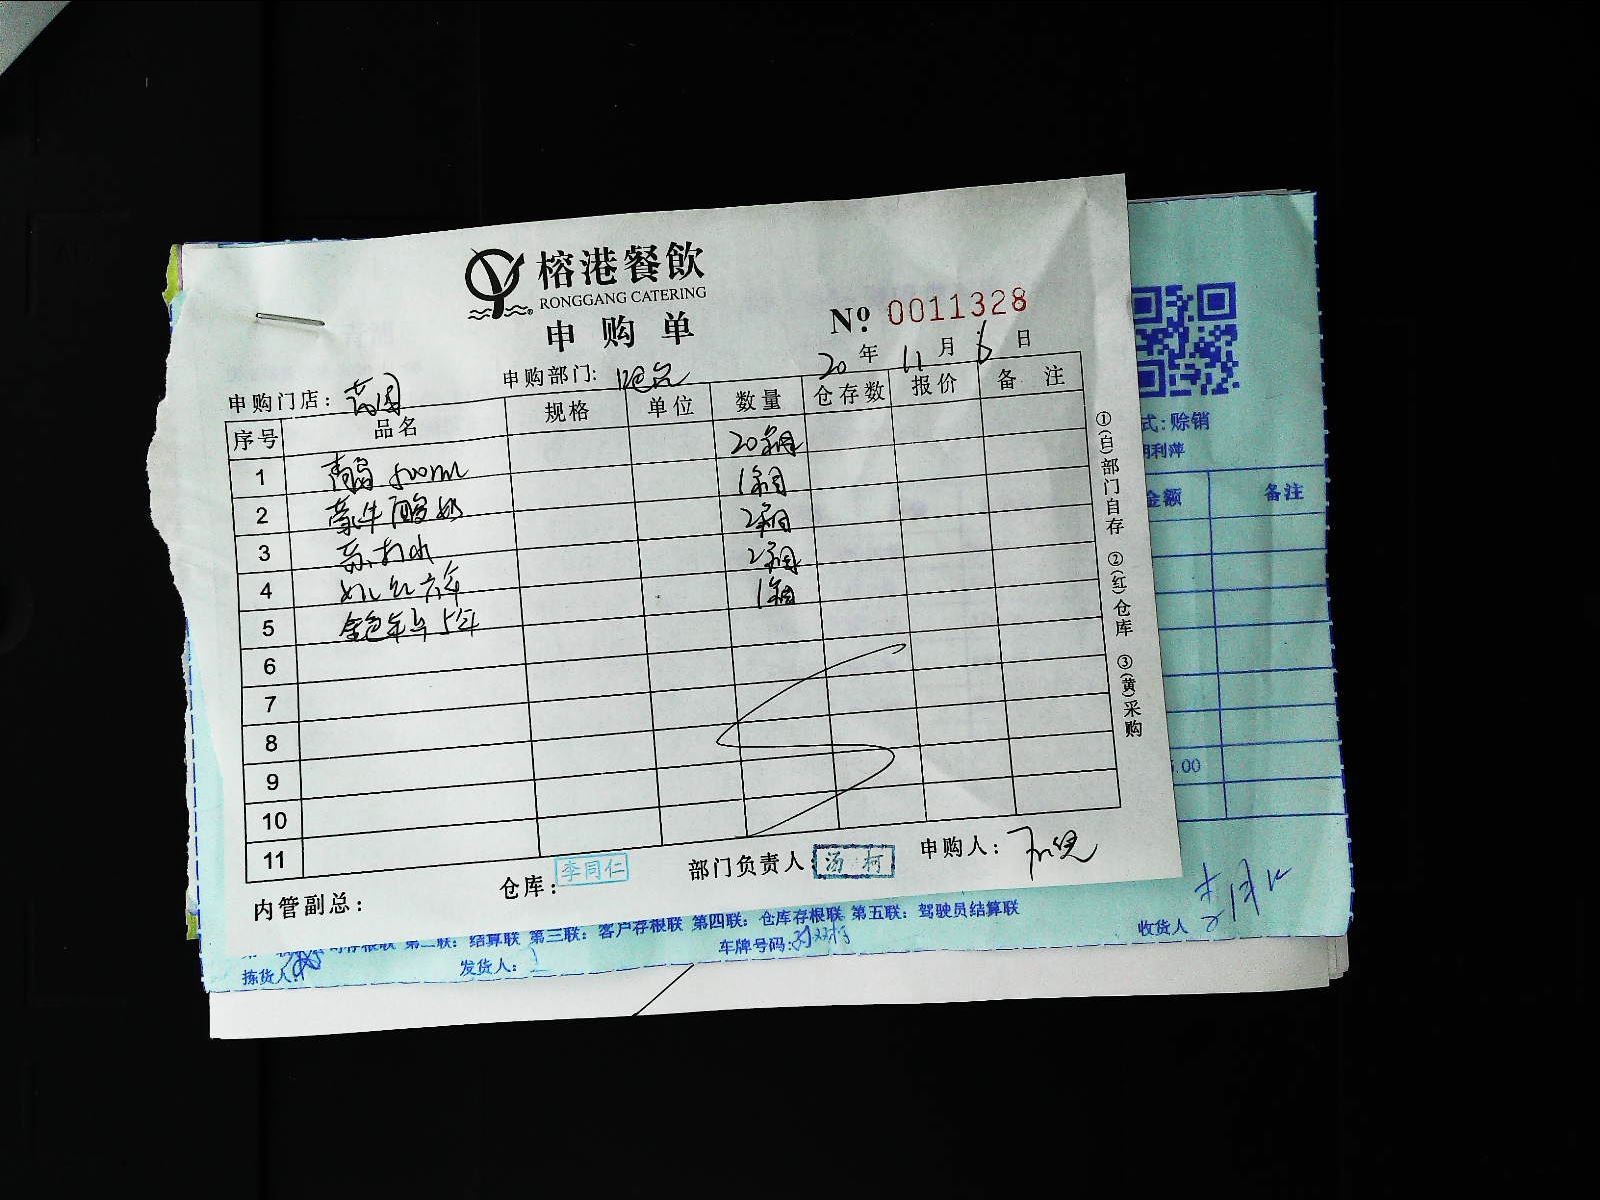 榕港餐飲
RONGGANG CATERING
申购单
№ 0011328
20年 11月 6日
申购门店：
申购部门：
序号 品名 规格 单位 数量 仓存数 报价 备注
1 500ml 20箱
2 蒙牛酸奶 1箱
3 苏打水 2箱
4 女儿红六年 2箱
5 金色年华5年 1箱
6
7
8
9
10
11
①(白)部门自存 ②(红)仓库 ③(黄)采购
内管副总： 仓库：李同仁 部门负责人：汤柯 申购人：
式：赊销
利萍
金额 备注
.00
存根联 第二联：结算联 第三联：客户存根联 第四联：仓库存根联 第五联：驾驶员结算联
拣货人： 发货人： 车牌号码： 收货人